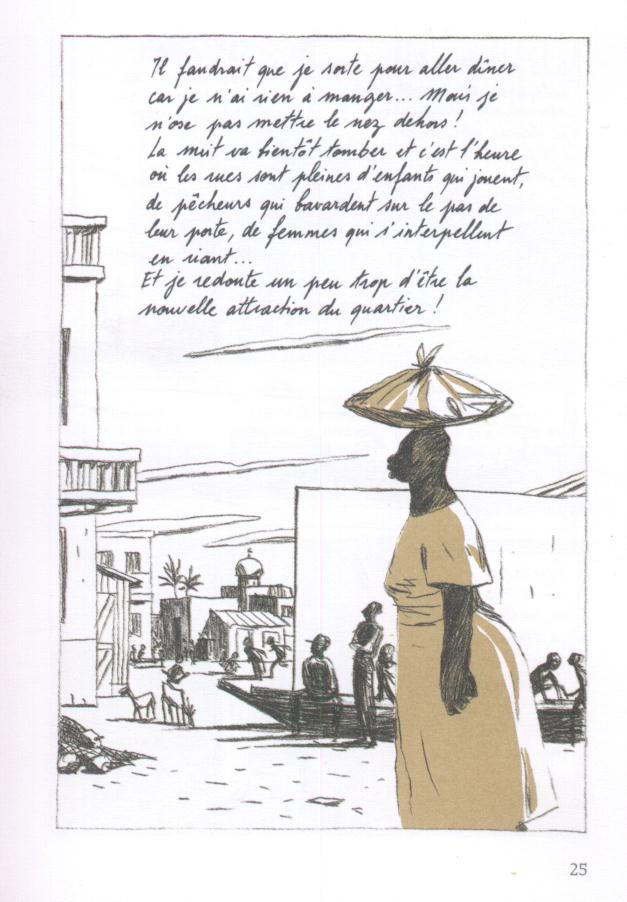 Il faudrait que je sorte pour aller dîner
car je n'ai rien à manger... Mais je
n'ose pas mettre le nez dehors !
La nuit va bientôt tomber et c'est l'heure
où les rues sont pleines d'enfants qui jouent,
de pêcheurs qui bavardent sur le pas de
leur porte, de femmes qui s'interpellent
en riant...
Et je redoute un peu trop d'être la
nouvelle attraction du quartier !
25